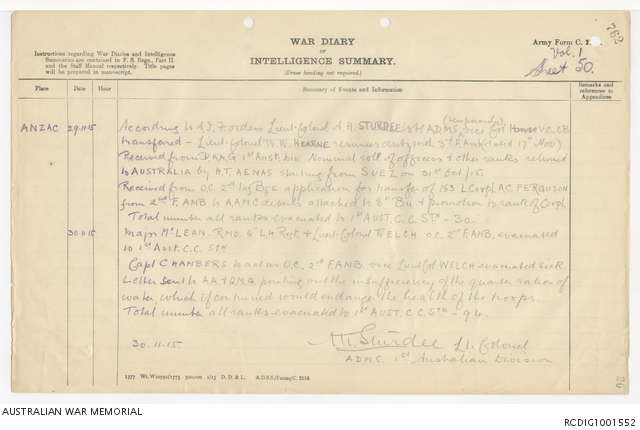 WAR DIARY
OR
INTELLIGENCE SUMMARY.
(Erase heading not required.)
Army Form C. 
Vol. 1
Sheet 50.
762
Instructions regarding War Diaries and Intelligence
Summaries are contained in F. S. Regs., Part II.
and the Staff Manual respectively. Title pages
will be prepared in manuscript.
Place Date Hour Summary of Events and Information Remarks and references to Appendices
ANZAC 29.11.15 According to A.I.F. orders Lieut-Colonel A.H. STURDEE is ADMS (temporarily) vice Col HOWSE V.C. CB
transferred - Lieut-Colonel W.W. HEARNE resumes duty with 3rd F. AMB (dated 17th Nov)
Received from DAAG 1st Aust. Div. Nominal roll of officers & other ranks returned
to AUSTRALIA by H.T. AENAS starting from SUEZ on 31st Oct/15.
Received from O.C. 2nd Inf Bgde application for transfer of 153 L Corpl A.C. FERGUSON
from 2nd F. AMB to AAMC details attached to 8th Bn & promotion to rank of Corpl.
Total number all ranks evacuated to 1st AUST. C.C. STn - 30.
30.11.15 Major McLEAN. RMO. 6th L H Regt. & Lieut-Colonel WELCH O.C. 2nd F. AMB. evacuated
to 1st Aust. C.C. Stn
Capt CHAMBERS to act as O.C. 2nd F. AMB. vice Lieut Col WELCH evacuated sick.
Letter sent to AA & QMG pointing out the insufficiency of the quarter ration of
water, which if continued would endanger the health of the troops.
Total number all ranks evacuated to 1st AUST. C.C. STn - 96.
30.11.15 Sturdee Lt. Colonel
ADMS. 1st Australian Division
1577 Wt. W10791/1773 500,000 1/15 D. D. & L. A.D.S.S./Forms/C. 2118.
AUSTRALIAN WAR MEMORIAL
RCDIG1001552